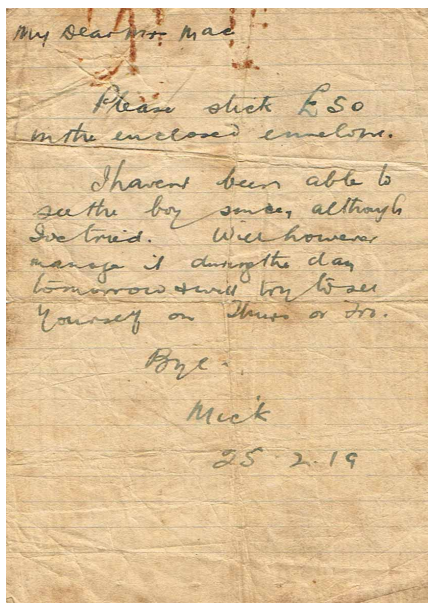 My Dear Mrs Mac
Please stick £50
in the enclosed envelope.
I havent been able to
see the boy since, although
I've tried. Will however
manage it during the day
tomorrow & will try to see
Yourself on Thurs or Fri.
Bye.
Mick
25.2.19